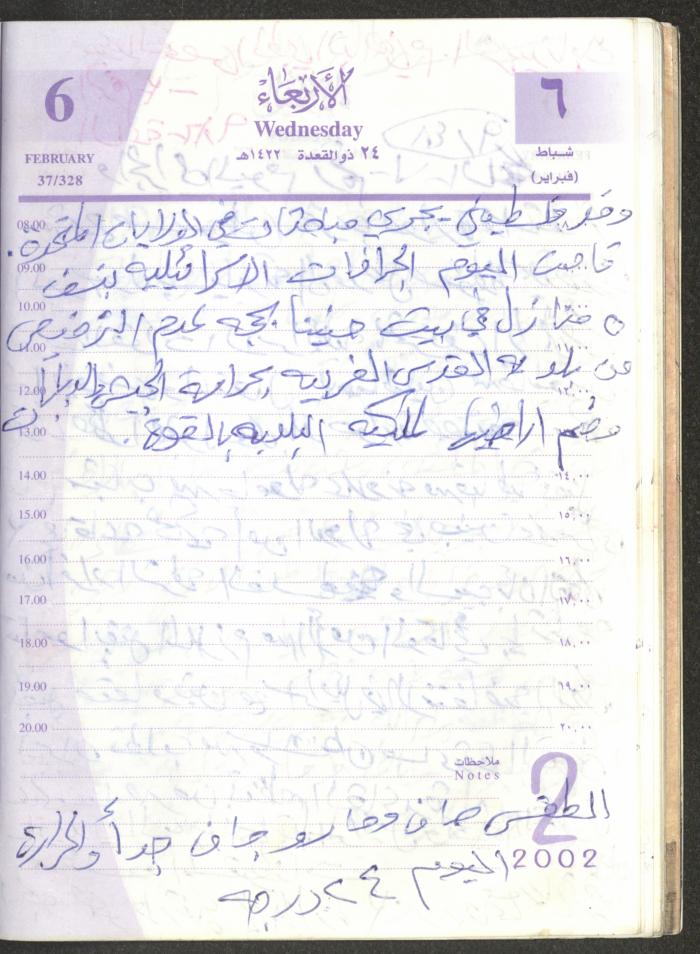 6
الأربعاء
٦
Wednesday
FEBRUARY
٢٤ ذوالقعدة ١٤٢٢هـ
شباط
37/328
(فبراير)
وفد فلسطيني يجري مباحثات في الولايات المتحدة.
08.00
قامت اليوم الجرافات الاسرائيلية بنسف
09.00
٥ منازل في بيت حنينا بحجه عدم الترخيص
10.00
11.00
من بلدية القدس الغربيه بحراسة الجيش
12.00
١٢,٠٠
وضم اراضيها لملكيه البلديه بالقوة
13.00
14.00 ١٤,٠٠
15.00 ١٥,٠٠
16.00 ١٦,٠٠
17.00 ١٧,٠٠
18.00 ١٨,٠٠
19.00 ١٩,٠٠
20.00 ٢٠,٠٠
ملاحظات
Notes
2
الطقس صاف وحار وجاف جداً والحرارة
2002
اليوم ٢٤ درجه